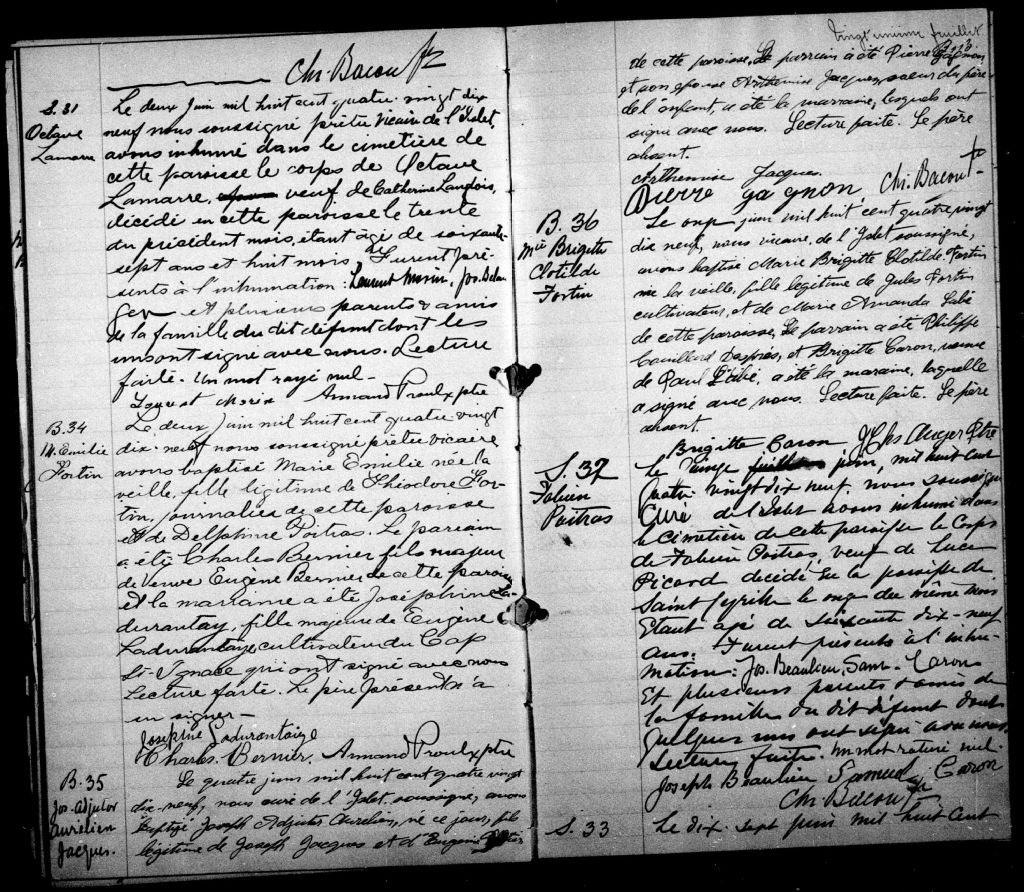 Chs. Bacon Ptre
S. 31
Octave
Lamarre
Le deux Juin mil huit cent quatre-vingt dix
neuf nous soussigné prêtre vicaire de l'Islet,
avons inhumé dans le cimetière de
cette paroisse le corps de Octave
Lamarre, veuf de Catherine Langlois,
décédé en cette paroisse le trente
du précédent mois, étant âgé de soixante
sept ans et huit mois. Furent pré-
sents à l'inhumation: Laurent Morin, Jos. Belan
ger et plusieurs parents & amis
de la famille du dit défunt dont les
uns ont signé avec nous. Lecture
faite. Un mot rayé nul-
Laurent Morin Armand Proulx ptre
B. 34
M. Emilie
Fortin
Le deux Juin mil huit cent quatre vingt
dix-neuf nous soussigné prêtre vicaire
avons baptisé Marie Emilie née la
veille, fille légitime de Théodore For-
tin, journalier de cette paroisse
et de Delphine Poitras. Le parrain
a été Charles Bernier fils majeur
de Veuve Eugène Bernier de cette paroisse
et la marraine a été Joséphine La-
durantay, fille majeure de Eugène
Ladurantaye cultivateur du Cap
St-Ignace qui ont signé avec nous
Lecture faite. Le père présent n'a
su signer-
Josephine Ladurantaye
Charles Bernier, Armand Proulx ptre
B. 35
Jos-Adjutor
Aurélien
Jacques.
Le quatre juin mil huit cent quatre vingt
dix-neuf, nous curé de l'Islet, soussigné, avons
baptisé Joseph Adjutor Aurélien, né ce jour, fils
légitime de Joseph Jacques et d'Eugénie
Vingt unième feuillet
de cette paroisse, Le parrain a été Pierre Gagnon
et son épouse Arthemise Jacques, soeur du père
de l'enfant, a été la marraine, lesquels ont
signé avec nous. Lecture faite. Le père
absent.
Arthemise Jacques.
Pierre gagnon Chs. Bacon Ptre
B. 36
Mie Brigitte
Clotilde
Fortin
Le onze juin mil huit cent quatre vingt
dix neuf, nous vicaire, de l'Islet soussigné,
avons baptisé Marie Brigitte Clotilde Fortin
née la veille, fille légitime de Jules Fortin
cultivateur, et de Marie Amanda Bébé
de cette paroisse, Le parrain a été Philippe
Couillard Després, et Brigitte Caron, veuve
de Paul Bébé, a été la maraine, laquelle
a signé avec nous. Lecture faite. Le père
absent.
Brigitte Caron Auger Ptre
S. 32
Fabien
Poitras
Le juin, mil huit cent
Quatre vingt dix neuf. nous soussigné
Curé de l'Islet avons inhumé dans
le Cimetière de cette paroisse le Corps
de Fabien Poitras, veuf de Luce
Picard décédé en la paroisse de
Saint Cyrille le onze du même mois
Etant agé de Soixante dix-neuf
ans. Furent présents à l'inhu-
mation: Jos. Beaulieu, Sam. Caron
Et plusieurs parents & amis de
la famille du dit défunt dont
Quelques uns ont signé avec nous
Lecture faite. Un mot raturé nul.
Joseph Beaulieu Samuel Caron
Chs. Bacon Ptre
S. 33
Le dix-sept juin mil huit cent